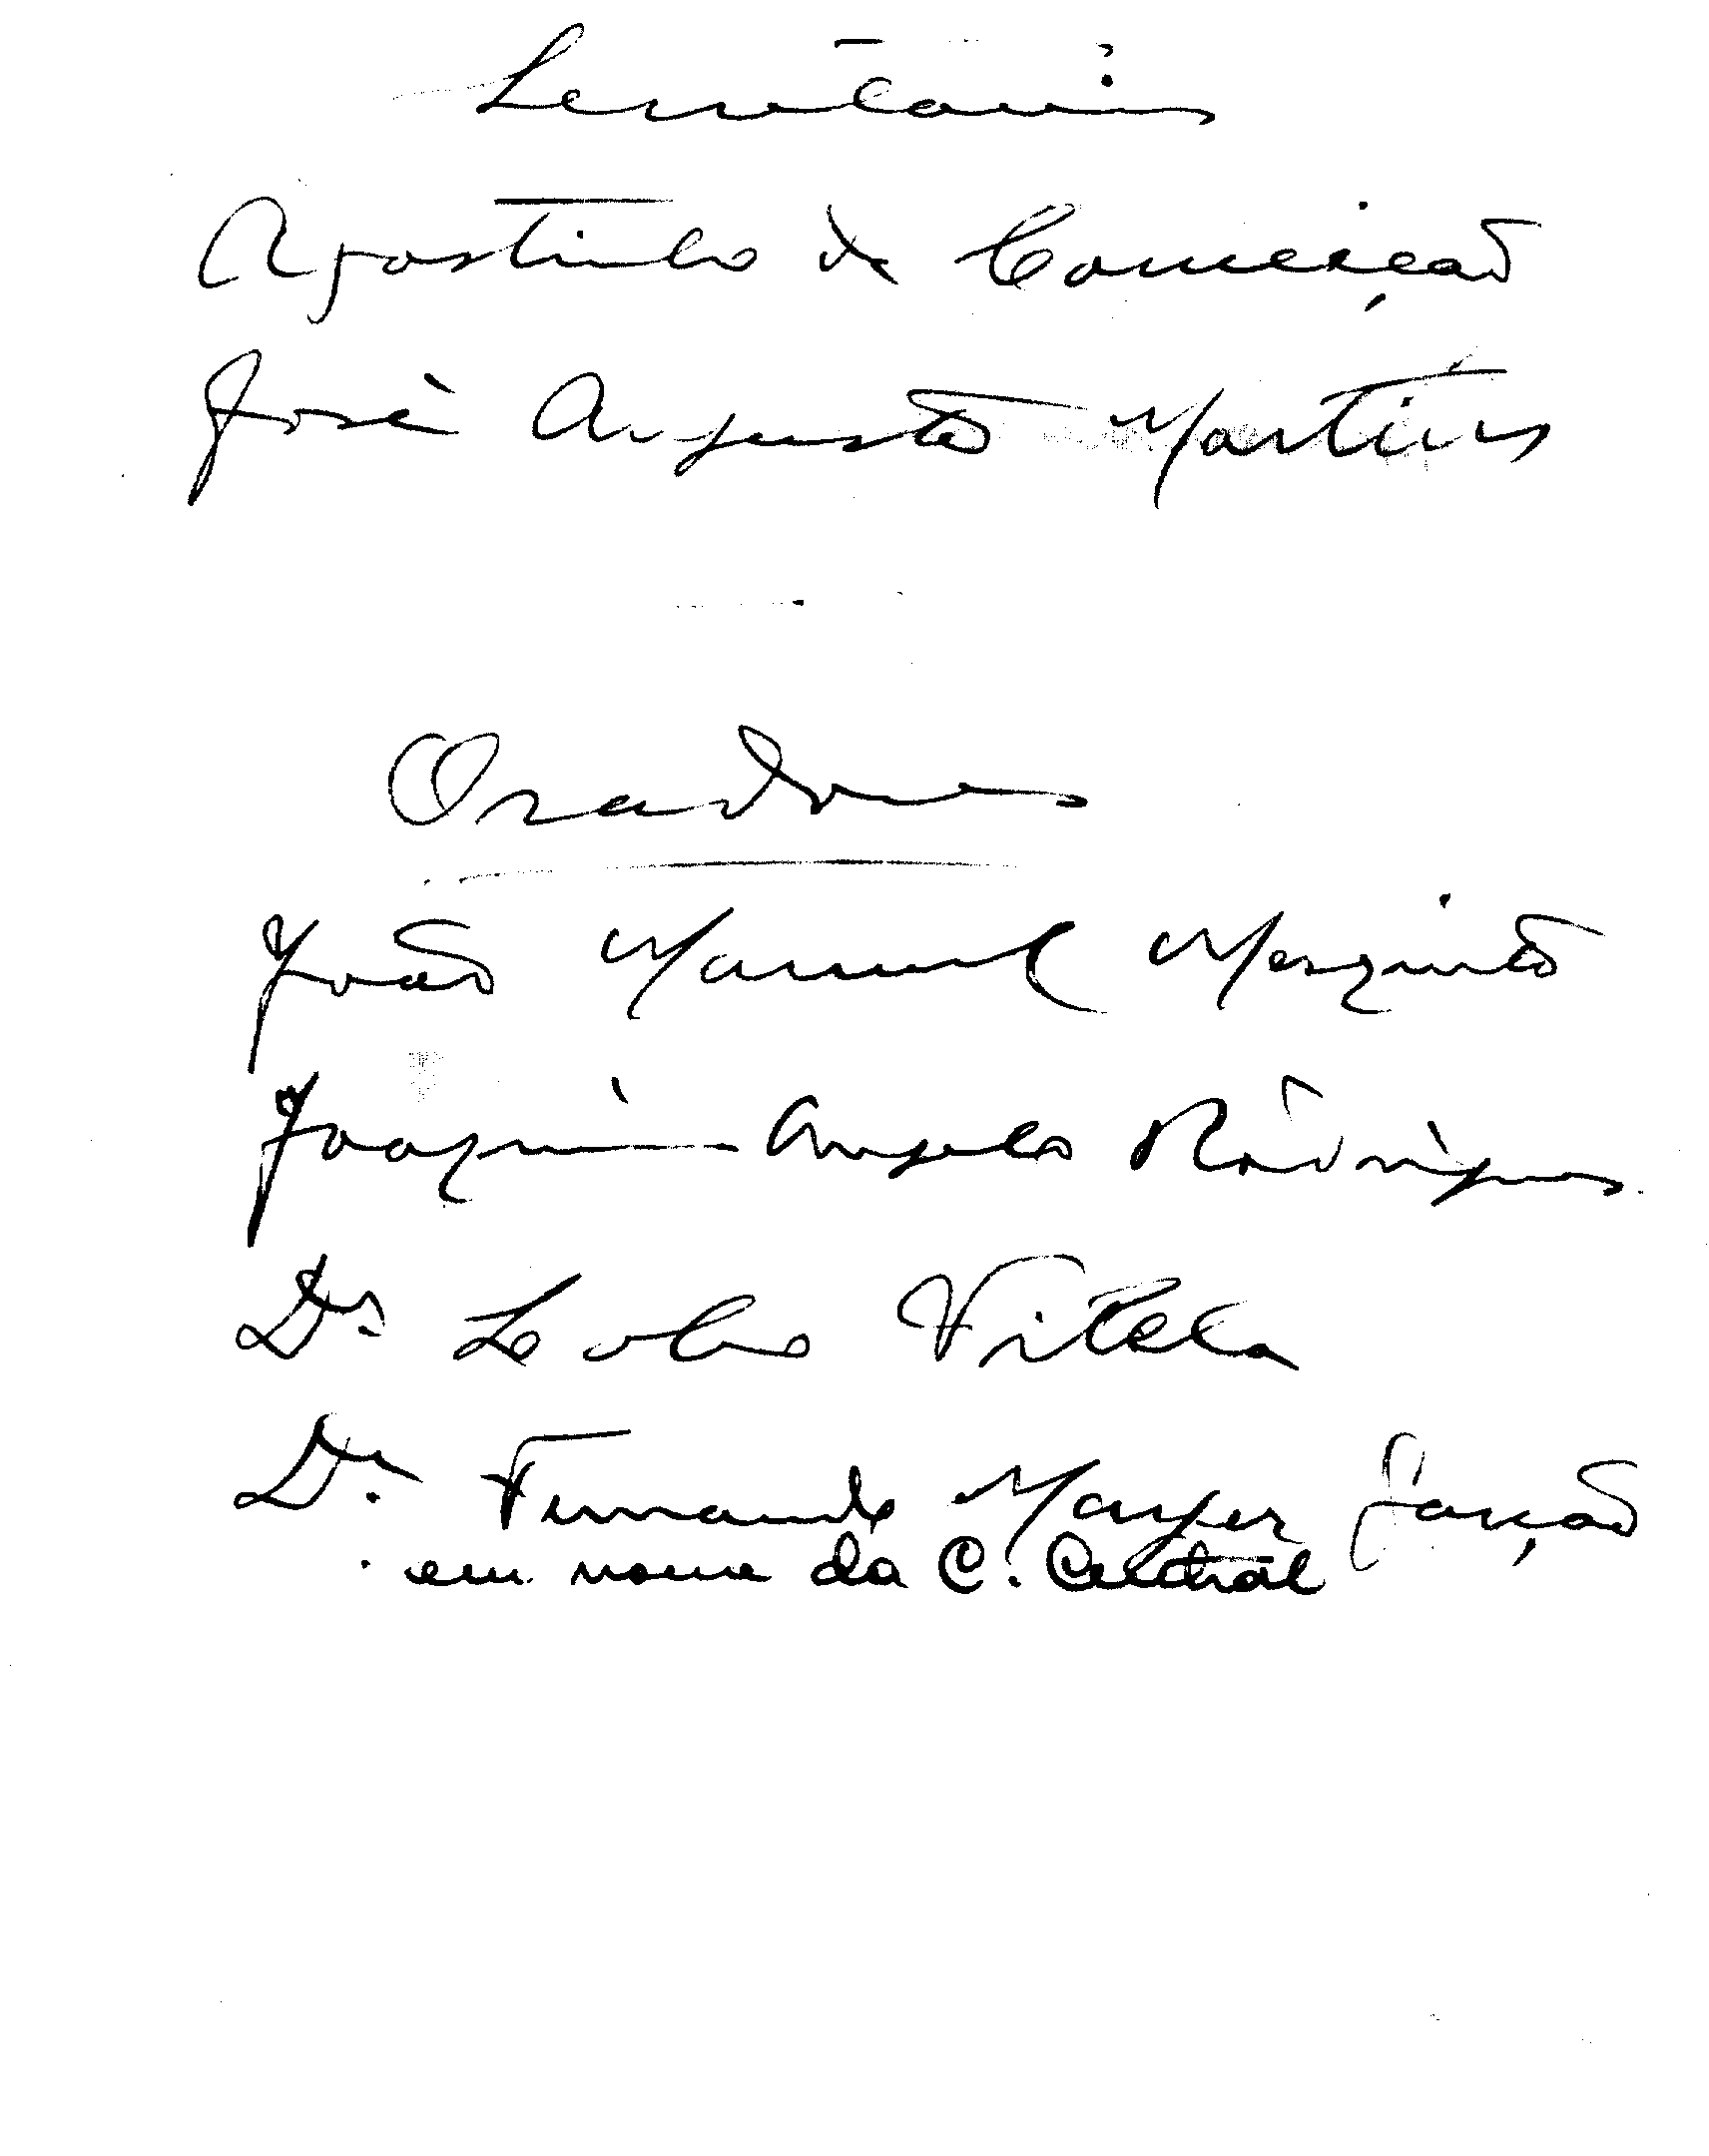 Secretários
Agostinho da Conceição
José Augusto Martins
Oradores
João Manuel Mesquita
Joaquim Angelo Rodrigues
Dr Lobo Vilela
Dr. Fernando Mayer Garção
em nome da C. Central